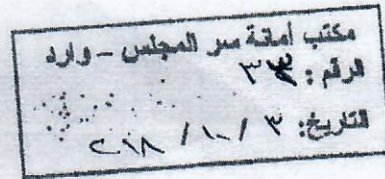 مكتب أمانة سر المجلس – وارد
الرقم :
التاريخ: ٣ / ١٠ / ٢٠١٨